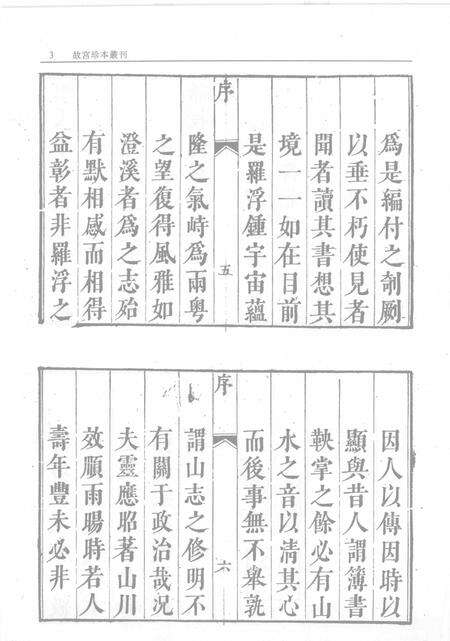 3 故宮珍本叢刊
爲是編付之剞劂
以垂不朽使見者
聞者讀其書想其
境一一如在目前
序 五
是羅浮鍾宇宙蘊
隆之氣峙爲兩粵
之望復得風雅如
澄溪者爲之志殆
有默相感而相得
益彰者非羅浮之
因人以傳因時以
顯與昔人謂簿書
鞅掌之餘必有山
水之音以清其心
序 六
而後事無不舉孰
謂山志之修明不
有關于政治哉況
夫靈應昭著山川
效順雨暘時若人
壽年豐未必非